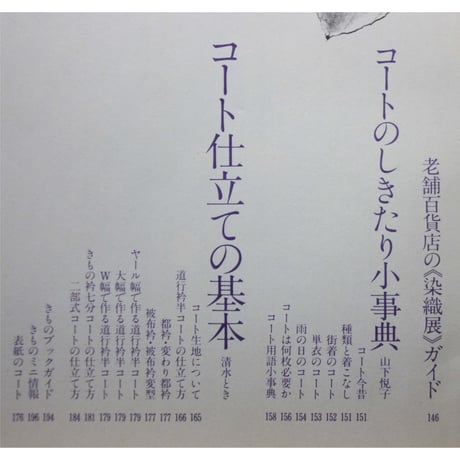 老舗百貨店の《染織展》ガイド 146
コートのしきたり小事典 山下悦子
コート今昔 151
種類と着こなし 151
街着のコート 152
単衣のコート 153
雨の日のコート 154
コートは何枚必要か 156
コート用語小事典 158
コート仕立ての基本 清水とき
コート生地について 165
道行衿半コートの仕立て方 166
都衿・変わり都衿 177
被布衿・被布衿変型 177
ヤール幅で作る道行衿半コート 179
大幅で作る道行衿半コート 179
W幅で作る道行衿半コート 179
きもの衿七分コートの仕立て方 181
二部式コートの仕立て方 184
きものブックガイド 194
きものミニ情報 196
表紙のコート 176